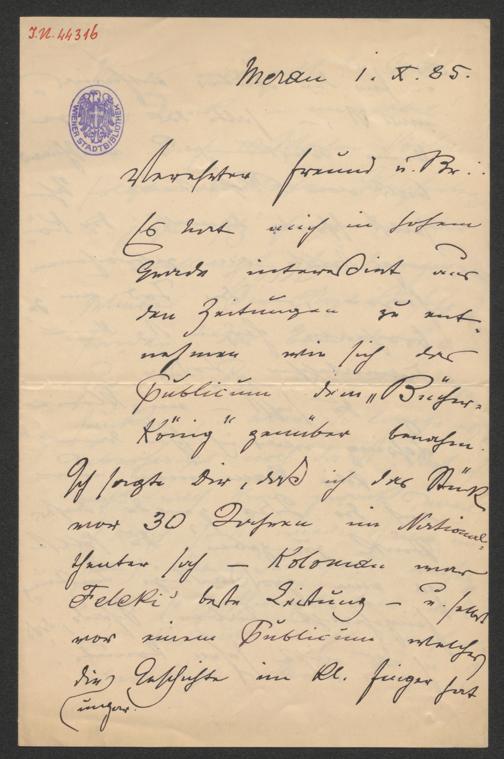 J.N. 44316
WIENER STADTBIBLIOTHEK
Meran 1. X. 85.
Verehrter Freund u. Br∴
Es hat mich in hohem
Grade interessirt aus
den Zeitungen zu ent-
nehmen wie sich das
Publicum dem „Bücher-
König" genüber benahm.
Ich sagte Dir, daß ich das Stück
vor 30 Jahren im National-
theater sah – Koloman war
Feleki's beste Leistung – u. selbst
vor einem Publicum welches
die Geschichte im kl. Finger hat
(ungar.